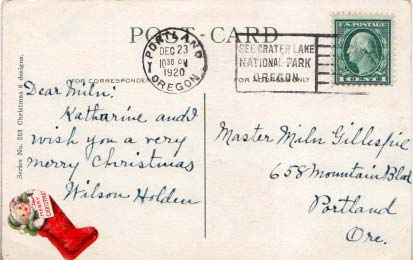 POST CARD
PORTLAND
DEC 23
1030 PM
1920
OREGON
SEE CRATER LAKE
NATIONAL PARK
OREGON
U.S. POSTAGE
1 CENT 1
FOR CORRESPONDENCE
FOR ADDRESS ONLY
Series No. 253 Christmas 6 designs.
Dear Miln:
Katharine and I
wish you a very
merry Christmas
Wilson Holden
Master Miln Gillespie
658 Mountain Blvd
Portland
Ore.
MERRY
CHRISTMAS